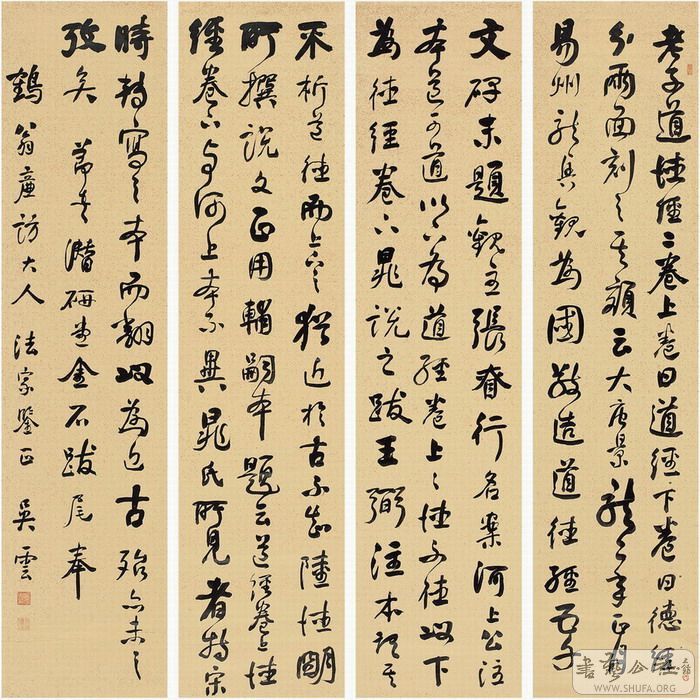 老子道德經二卷上卷曰道經下卷曰德經
分兩面刻之其額云大唐景龍二年正月
易州龍興觀為國敬造道德經五千
文碑末題觀主張眘行名案河上公注
本道可道以下為道經卷上〻德不德以下
為德經卷下晁說之跋王弼注本謂其
不析道德而上下之猶近於古不知陸德明
所撰說文正用輔嗣本題云道經卷上德
經卷下与河上本不異晁氏所見者特宋
時轉寫之本而翻以為近古殆亦未之
攷矣 節書潛研堂金石跋尾奉
鶴翁廉訪大人 法家鑒正 吳雲
WWW.SHUFA.ORG